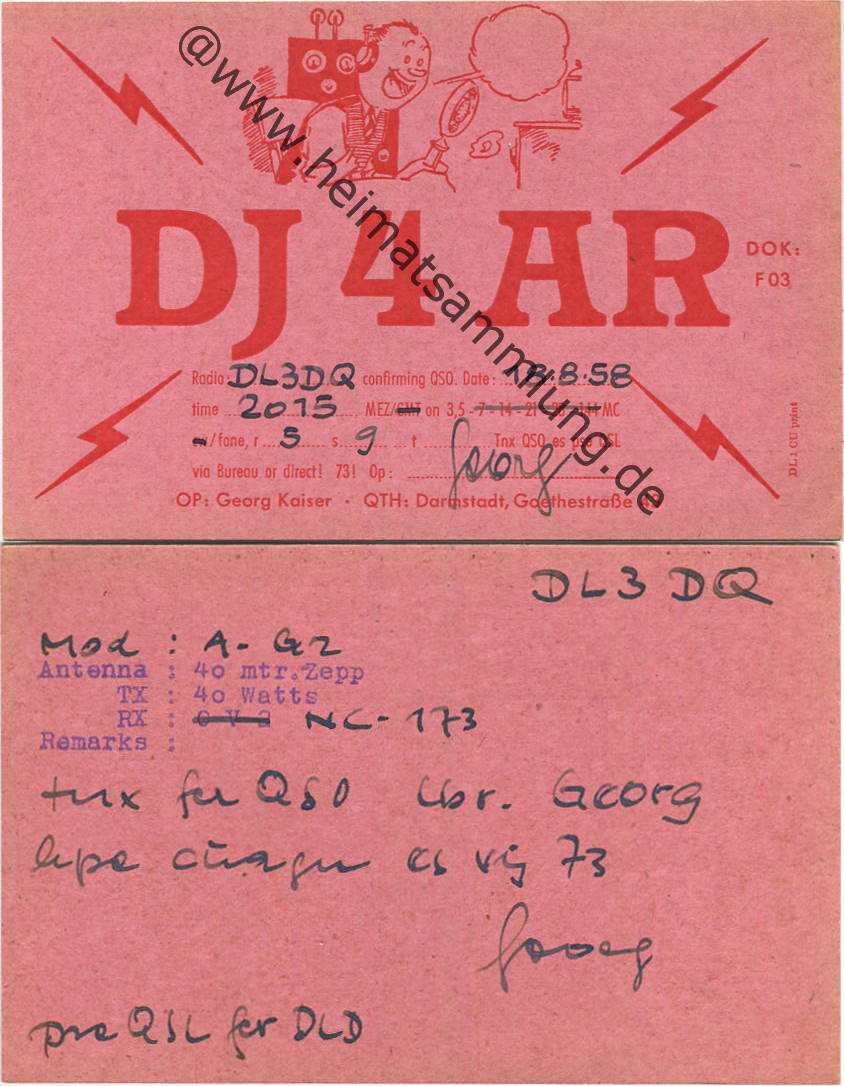 @www.heimatsammlung.de
DJ 4 AR
DOK:
F 03
Radio: DL3DQ confirming QSO. Date: 18.8.58
time 2015 MEZ/GMT on 3,5 - 7 - 14 - 21 - 28 - 144 MC
cw/fone, r 5 s 9 t Tnx QSO es pse QSL
via Bureau or direct! 73! Op: Georg
OP: Georg Kaiser · QTH: Darmstadt, Goethestraße 42
DL 1 CU print
DL3DQ
Mod : A-G2
Antenna : 4o mtr.Zepp
TX : 4o Watts
RX : O V 2 NC-173
Remarks :
tnx fer QSO lbr. Georg
hpe cuagn es vy 73
Georg
pse QSL fer DLD